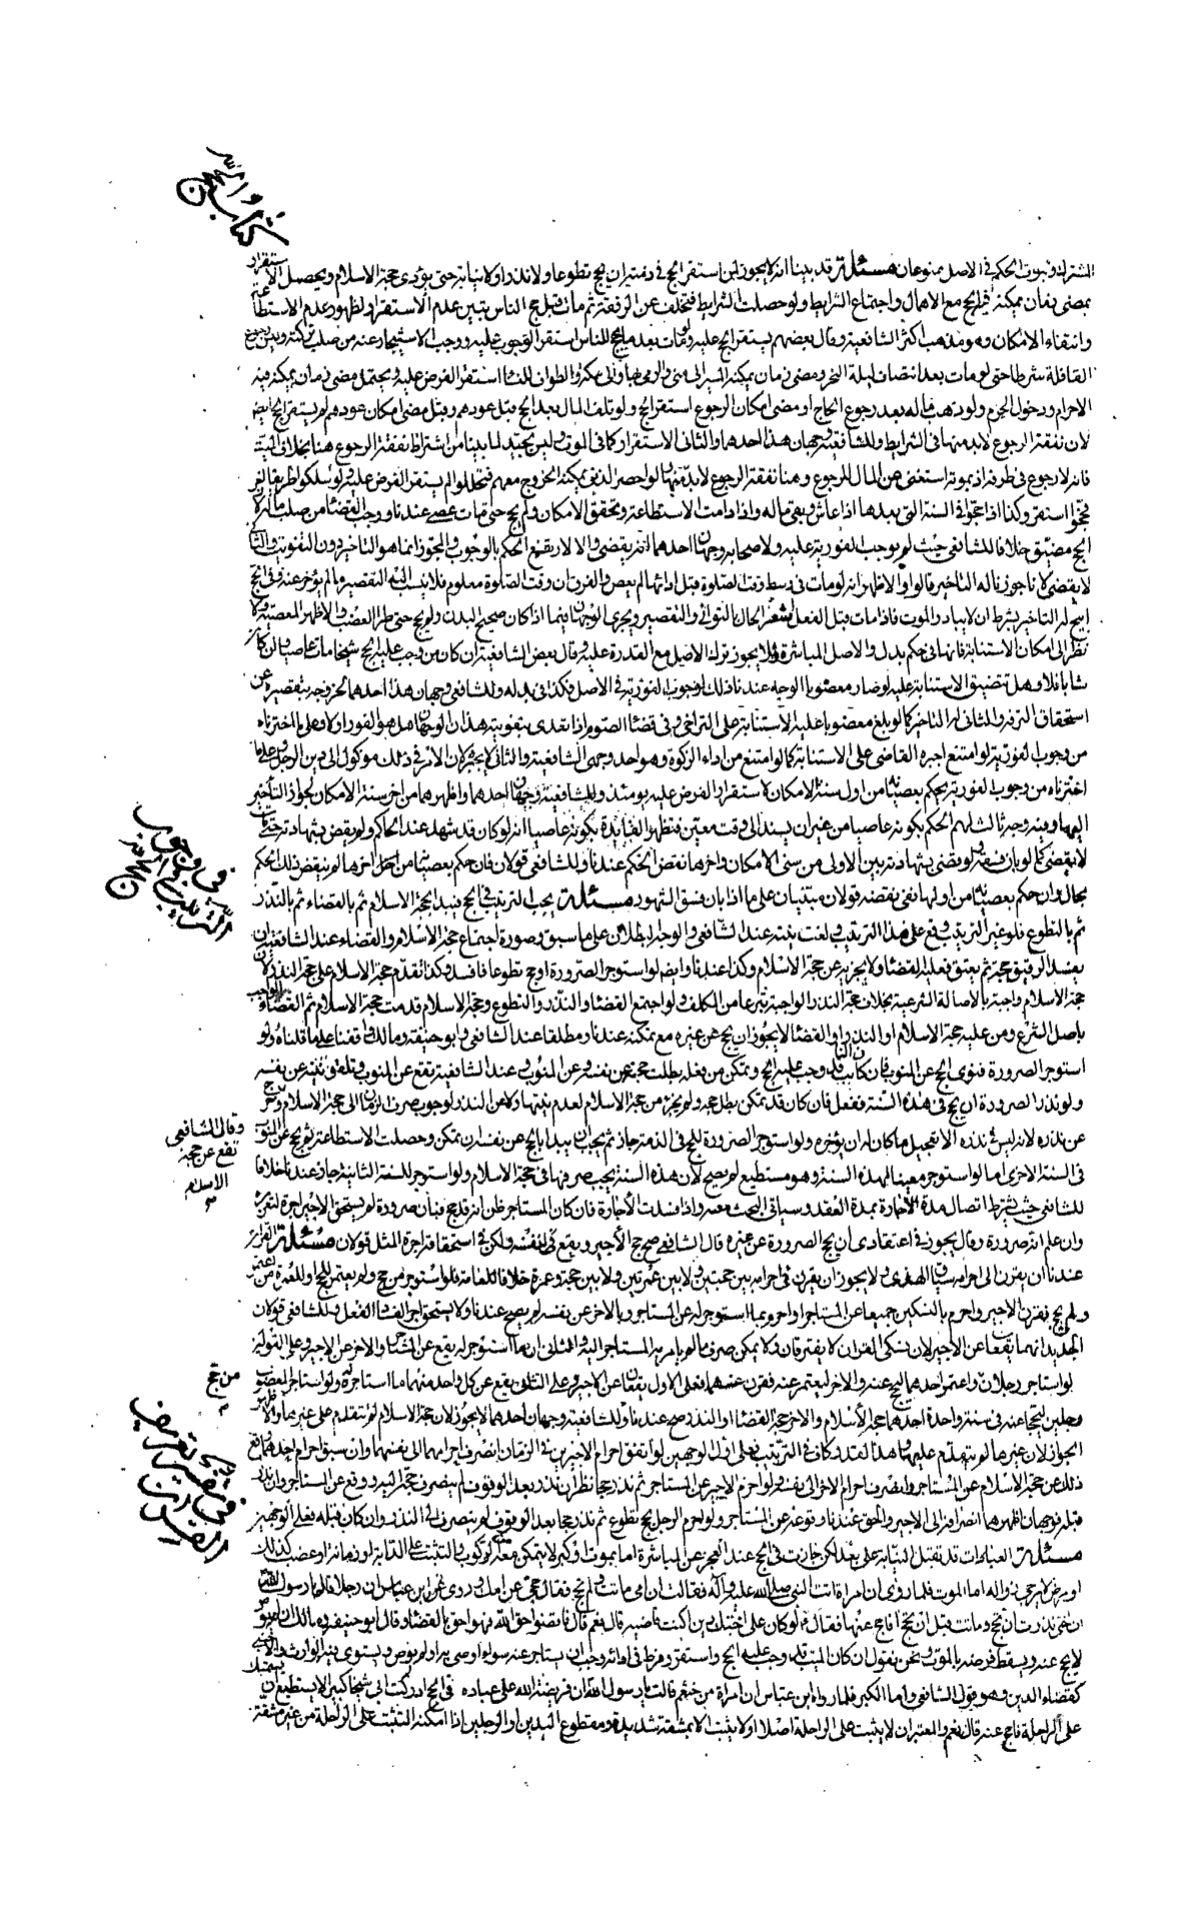 الشرك وثبوت الحكم في الاصل ممنوعان مسئلة قد بينا انه لا يجوز لمن استقر الحج في ذمته ان يحج تطوعا ولا نذرا ولا نيابة حتى يؤدي حجة الاسلام ويحصل الاستقرار
بمضي زمان يمكنه فيه الحج مع الاهمال واجتماع الشرايط ولو حصلت الشرايط فتخلف عن الرفقة ثم مات قبل حج الناس تبين عدم الاستقرار لظهور عدم الاستطاعة
وانتفاء الامكان وهو مذهب اكثر الشافعية وقال بعضهم يستقر الحج عليه ولو مات بعد ما حج الناس استقر الوجوب عليه ووجب الاستيجار عنه من صلب تركته وليس رجوع
القافلة شرطا حتى لو مات بعد انتصاف ليلة النحر ومضي زمان يمكنه المسير الى منى والرمي بها والى مكة والطواف للنساء استقر الفرض عليه ويحتمل مضي زمان يمكنه فيه
الاحرام ودخول الحرم ولو ذهب ماله بعد رجوع الحاج او مضي امكان الرجوع استقر الحج ولو تلف المال بعد الحج قبل عودهم وقبل مضي امكان عودهم لم يستقر الحج ايضا
لان نفقة الرجوع لا بد منها في الشرايط وللشافعية وجهان هذا احدهما والثاني الاستقرار كما في الموت وليس بجيد لما بينا من اشتراط نفقة الرجوع هنا بخلاف الميت
فانه لا رجوع في طرفه اذ بموته استغنى عن المال للرجوع وهنا نفقة الرجوع لا بد منها ولو احصر الذين يمكنه الخروج معهم فتحللوا لم يستقر الفرض عليه ولو سلكوا طريقا اخر
فحجوا استقر وكذا اذا حجوا في السنة التي بعدها اذا عاش وبقي ماله واذا دامت الاستطاعة وتحقق الامكان ولم يحج حتى مات عصى عندنا ووجب القضاء من صلب ماله لان
الحج مضيق خلافا للشافعي حيث لم يوجب الفورية عليه ولاصحابه وجهان احدهما انه يقضي والا لارتفع الحكم بالوجوب والمجوز انما هو التاخير دون التفويت والثاني
لا يقضي لانا جوزنا له التاخير قالوا والاظهر انه لو مات في وسط وقت الصلوة قبل ادائها لم يعص والفرق ان وقت الصلوة معلوم فلا ينسب اليه التقصير ما لم يؤخر عنه وفي الحج
ابيح له التاخير بشرط ان لا يبادر الموت فاذا مات قبل الفعل اشعر الحال بالتواني والتقصير ويجري الوجهان فيما اذا كان صحيح البدن ولم يحج حتى طرأ العضب والاظهر المعصية ولا
نظر الى امكان الاستنابة فانها في حكم بدل والاصل المباشرة فلا يجوز ترك الاصل مع القدرة عليه وقال بعض الشافعية ان كان من وجب عليه الحج شيخا مات عاصيا وان كان
شابا فلا وهل تتضيق الاستنابة عليه لو صار معضوبا الوجه عندنا ذلك لوجوب الفورية في الاصل فكذا في بدله وللشافعي وجهان هذا احدهما لخروجه بتقصيره عن
استحقاق الترفه والثاني له التاخير كما لو بلغ معضوبا عليه الاستنابة على التراخي وفي قضاء الصوم اذا تعدى بتفويته هذان الوجهان هل هو الفور او لا وعلى ما اخترناه
من وجوب الفورية لو امتنع اجبره القاضي على الاستنابة كما لو امتنع من اداء الزكوة وهو احد وجهي الشافعية والثاني لا يجبره لان الامر في ذلك موكول الى دين الرجل وعلى ما
اخترناه من وجوب الفورية يحكم بعصيانه من اول سنة الامكان لاستقرار الفرض عليه يومئذ وللشافعية وجهان احدهما واظهرهما من اخر سنة الامكان لجواز التاخير
اليها وفيه وجه ثالث لهم الحكم بكونه عاصيا من غير ان يسند الى وقت معين فتظهر الفايدة بكونه عاصيا انه لو كان قد شهد عند الحاكم ولم يقض بشهادته حتى مات
لا يقضي كما لو بان فسقه ولو قضى بشهادته بين الاولى من سني الامكان واخرها نقض الحكم عندنا وللشافعي قولان فان حكم بعصيانه من اخرها لم ينقض ذلك الحكم
بحال وان حكم بعصيانه من اولها ففي نقضه قولان مبنيان على ما اذا بان فسق الشهود مسئلة يجب الترتيب في الحج فيبدا بحجة الاسلام ثم بالقضاء ثم بالنذر
ثم بالتطوع فلو غير الترتيب وقع على هذا الترتيب ولغت نيته عند الشافعي والوجه البطلان على ما سبق وصورة اجتماع حجة الاسلام والقضاء عند الشافعية ان
يفسد الرقيق حجه ثم يعتق فعليه القضاء ولا يجزيه عن حجة الاسلام وكذا عندنا وايضا لو استوجر الصرورة او حج تطوعا فافسده وكذا تقدم حجة الاسلام على حجة النذر لان
حجة الاسلام واجبة بالاصالة الشرعية بخلاف حجة النذر الواجبة تبرعا من المكلف ولو اجتمع القضاء والنذر والتطوع وحجة الاسلام قدمت حجة الاسلام ثم القضاء الواجب
باصل الشرع ومن عليه حجة الاسلام او النذر او القضاء لا يجوز ان يحج عن غيره مع تمكنه عندنا ومطلقا عند الشافعي وابو حنيفة ومالك وافقنا على ما قلناه ولو
استوجر الصرورة فنوى الحج عن المنوب فان كان النائب قد وجب عليه الحج وتمكن من فعله بطلت حجته عن نفسه وعن المنوب وعند الشافعية تقع عن المنوب وتلغو نيته عن نفسه
ولو نذر الصرورة ان يحج في هذه السنة ففعل فان كان قد تمكن بطل حجه ولم يجزه من حجة الاسلام لعدم نيتها ولا عن النذر لوجوب صرف الزمان الى حجة الاسلام وخرج
عن نذره لانه ليس في نذره الا تعجيل ما كان له ان يؤخره ولو استوجر الصرورة للحج في الذمة جاز ثم يجب ان يبدا بالحج عن نفسه ان تمكن وحصلت الاستطاعة ثم يحج عن المنوب
في السنة الاخرى اما لو استوجر معينا لهذه السنة وهو مستطيع لم يصح لان هذه السنة يجب صرفها في حجة الاسلام ولو استوجر للسنة الثانية جاز عندنا خلافا
للشافعي حيث يشترط اتصال مدة الاجارة بمدة العقد وسياتي البحث معه واذا فسدت الاجارة فان كان المستاجر ظن انه قد حج فبان صرورة لم يستحق الاجير اجرة لتغريره
وان علم انه صرورة وقال يجوز في اعتقادي ان يحج الصرورة عن غيره قال الشافعي صح حج الاجير ويقع لنفسه ولكن في استحقاقه اجرة المثل قولان مسئلة القران
عندنا ان يقرن الى احرامه سياق الهدي ولا يجوز ان يقرن في احرامه بين حجتين ولا بين عمرتين ولا بين حجة وعمرة خلافا للعامة فلو استوجر من حج ولم يعتمر للحج او للعمرة من اعتمر
ولم يحج فقرن الاجير واحرم بالنسكين جميعا عن المستاجر او احرم بما استوجر له عن المستاجر وبالاخر عن نفسه لم يصح عندنا ولا يستحق اجرا لفساد الفعل وللشافعي قولان
الجديد انهما يقعان عن الاجير لان نسكي القران لا يفترقان ولا يمكن صرف ما لم يامر به المستاجر اليه والثاني ان ما استوجر له يقع عن المستاجر والاخر عن الاجير وعلى القولين
لو استاجر رجلان من حج واعتمر احدهما ليحج عنه والاخر ليعتمر عنه فقرن عنهما فعلى الاول يقعان عن الاجير وعلى الثاني يقع عن كل واحد منهما ما استاجره له ولو استاجر المعضوب
رجلين ليحجا عنه في سنة واحدة احدهما حجة الاسلام والاخر حجة القضاء او النذر صح عندنا وللشافعية وجهان احدهما لا يجوز لان حجة الاسلام لم تتقدم على غيرها والاظهر
الجواز لان غيرها لم يتقدم عليها وهذا القدر كاف في الترتيب فعلى الاول الوجهين لو اتفق احرام الاجيرين في الزمان انصرف احرامهما الى نفسهما وان سبق احرام احدهما وقع
ذلك عن حجة الاسلام عن المستاجر وانصرف احرام الاخر الى نفسه ولو احرم الاجير عن المستاجر ثم نذر حجا نظر ان نذر بعد الوقوف لم ينصرف حجه اليه ووقع عن المستاجر وان نذر
قبله فوجهان اظهرهما انصرافه الى الاجير والحق عندنا وقوعه عن المستاجر ولو احرم الرجل بحج تطوع ثم نذر حجا بعد الوقوف لم ينصرف الى النذر وان كان قبله فعلى الوجهين
مسئلة العبادات قد تقبل النيابة على بعد لكن جازت في الحج عند العجز عن المباشرة اما بموت او كبر لا يتمكن معه الركوب والتثبت على الدابة او زمانة او عضب كذلك
او مرض لا يرجى زواله اما الموت فلما روي ان امراة اتت النبي صلى الله عليه وآله فقالت ان امي ماتت ولم تحج فقال حجي عن امك وروي عن ابن عباس ان رجلا قال يا رسول الله
ان اختي نذرت ان تحج وماتت قبل ان تحج افاحج عنها فقال لو كان على اختك دين اكنت قاضيه قال نعم قال فاقضوا حق الله فهو احق بالقضاء وقال ابو حنيفة ومالك ان مات
لا يحج عنه ويسقط فرضه بالموت ونحن نقول ان كان الميت قد وجب عليه الحج واستقر وفرط في ادائه وجب ان يستاجر عنه سواء اوصى به او لم يوص ويستوي فيه الوارث والاجنبي
كقضاء الدين وهو قول الشافعي واما الكبر فلما رواه ابن عباس ان امراة من خثعم قالت يا رسول الله ان فريضة الله على عباده في الحج ادركت ابي شيخا كبيرا لا يستطيع ان يستمسك
على الراحلة فاحج عنه قال نعم والمعتبر ان لا يثبت على الراحلة اصلا او لا يثبت الا بمشقة شديدة ومقطوع اليدين او الرجلين اذا امكنه التثبت على الراحلة من غير مشقة
وقال الشافعي
تقع عن حجة
الاسلام
من حج